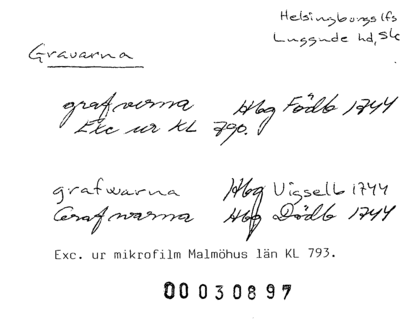 Helsingborgs lfs
Luggude hd, Sk
Gravarna
grafverna Hbg Födb 1744
Exc ur KL 790.
grafwarna Hbg Vigselb 1744
Grafwarna Hbg Dödb 1744
Exc. ur mikrofilm Malmöhus län KL 793.
00030897